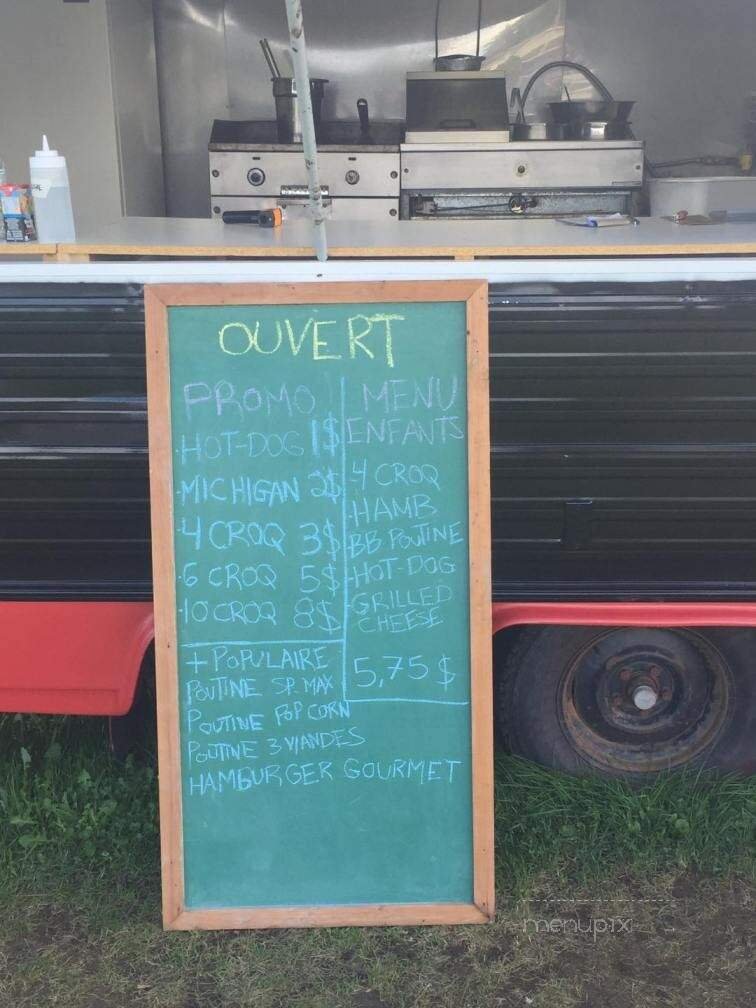 OUVERT
PROMO
·HOT-DOG 1$
·MICHIGAN 2$
·4 CROQ 3$
·6 CROQ 5$
·10 CROQ 8$
MENU
ENFANTS
·4 CROQ
·HAMB
·BB POUTINE
·HOT-DOG
·GRILLED
CHEESE
5,75 $
+ POPULAIRE
POUTINE SP. MAX
POUTINE POP CORN
POUTINE 3 VIANDES
HAMBURGER GOURMET
menupix